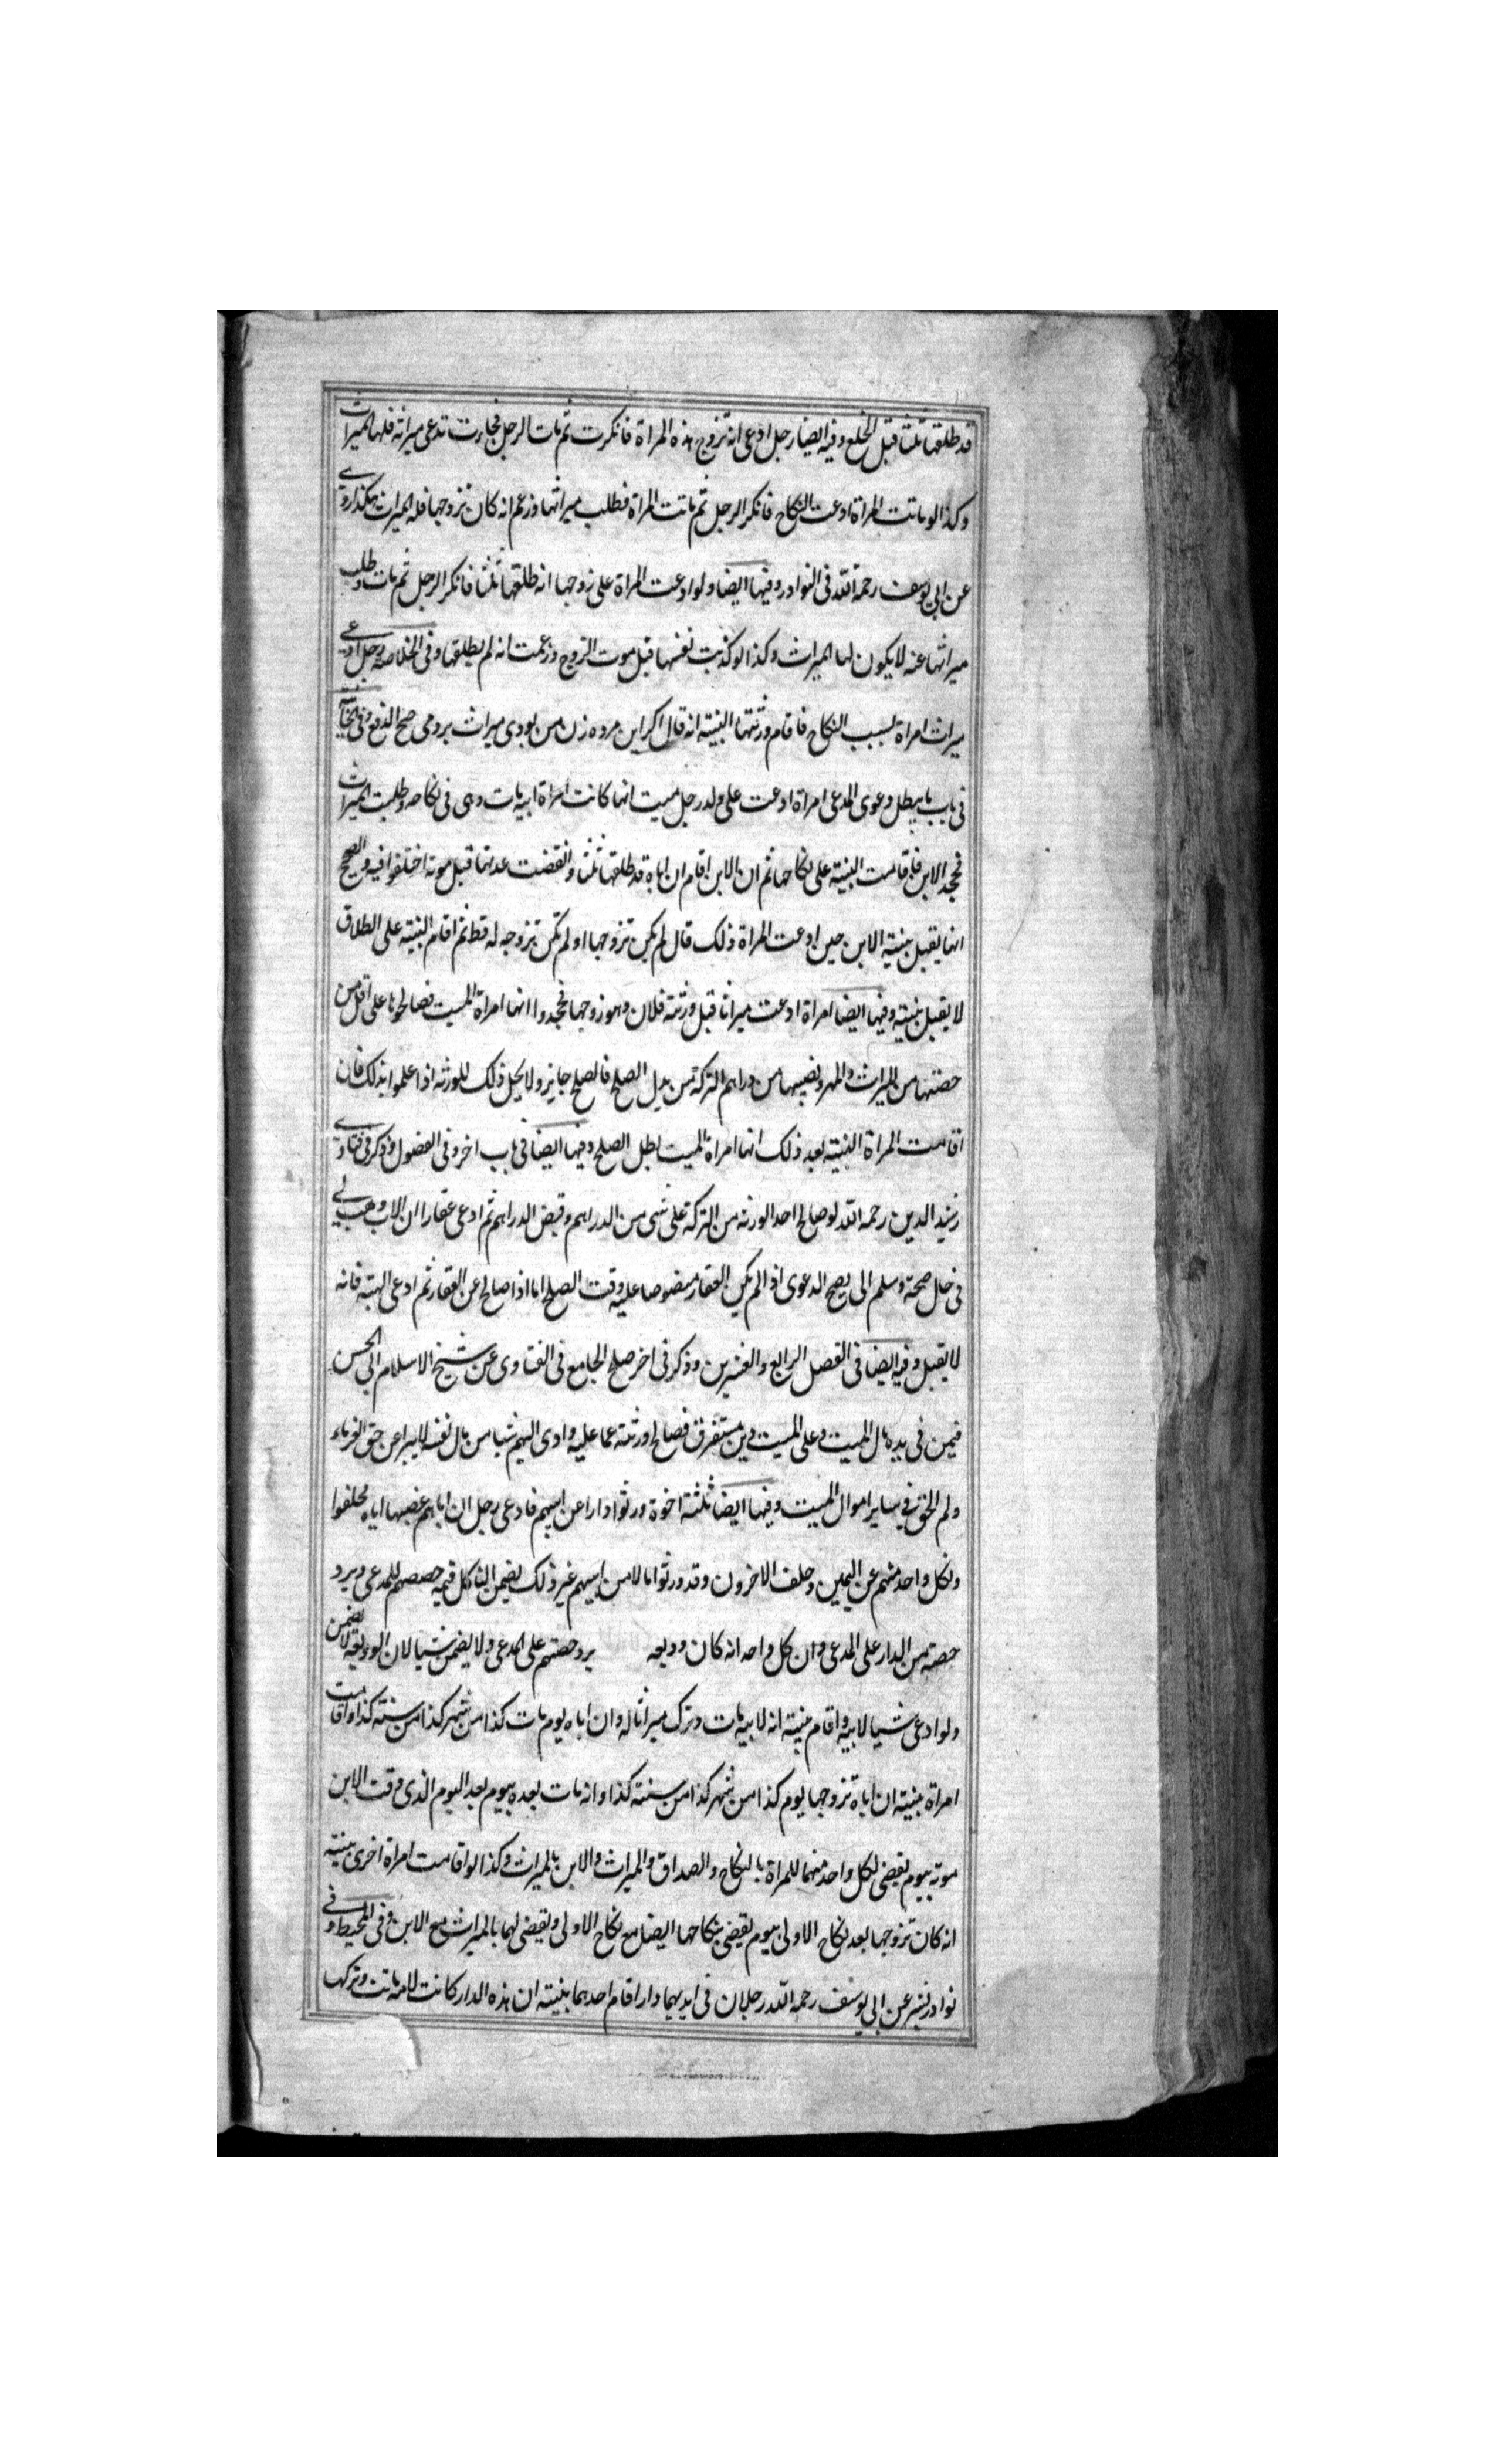 قد طلقها ثلثا قبل الخلع وفيه ايضا رجل ادعى انه تزوج هذه المراة فانكرت ثم مات الرجل فجاءت تدعى ميراثه فلها الميراث
وكذا لو ماتت المراة ادعت النكاح فانكر الرجل ثم ماتت المراة فطلب ميراثها وزعم انه كان تزوجها فله الميراث هكذا روى
عن ابي يوسف رحمة الله في النوادر وفيها ايضا ولو ادعت المراة على زوجها انه طلقها ثلثا فانكر الرجل ثم مات وطلب
ميراثها عنه لا يكون لها الميراث وكذا لو كذبت نفسها قبل موت الزوج وزعمت انه لم يطلقها وفي الخلاصه رجل ادعى
ميراث امراة بسبب النكاح فاقام ورثتها البينة انه قال اكر اين مرده زن من بودى ميراث بردمى صح الدفع وفي الخانيه
في باب ما يبطل دعوى المدعى امراة ادعت على ولد رجل ميت انها كانت امراة ابيه مات وهى فى نكاحه وطلبت الميراث
فجحد الابن فاقامت البينة على نكاحها ثم ان الابن اقام ان اباه قد طلقها ثلثا وانقضت عدتها قبل موته اختلفوا فيه والصحيح
انها يقبل بينة الابن حين ادعت المراة ذلك قال لم يكن تزوجها او لم تكن بزوجه له قط ثم اقام البينة على الطلاق
لا يقبل بينته وفيها ايضا امراة ادعت ميراثا قبل ورثة فلان وهو زوجها فجحدوا انها امراة الميت فصالحوها على اقل من
حصتها من الميراث والمهر ونصيبها من دراهم التركة من بدل الصلح فالصلح جايز ولا يحل ذلك للورثه اذا علموا بذلك فان
اقامت المراة البينة بعد ذلك انها امراة الميت بطل الصلح وفيها ايضا في باب اخر وفى الفصول وذكر في فتاوى
رشيد الدين رحمه الله لو صالح احد الورثه من التركة على شى من الدراهم وقبض الدراهم ثم ادعى عقارا ان الاب وهب لى
في حال صحته وسلم الى يصح الدعوى اذا لم يكن العقار منصوصا عليه وقت الصلح اما اذا صالح عن العقار ثم ادعى الهبة فانه
لا يقبل وفيه ايضا فى الفصل الرابع والعشرين وذكر فى اخر صلح الجامع فى الفتاوى عن شيخ الاسلام ابى الحسن
فيمن فى يده مال الميت وعلى الميت دين مستغرق فصالح ورثته عما عليه وادى اليهم شيا من مال نفسه لا يبرا عن حق الغرماء
ولهم الحق فى ساير اموال الميت وفيها ايضا ثلثة اخوة ورثوا دارا عن ابيهم فادعى رجل ان اباهم غصبها اياه فحلفوا
ونكل واحد منهم عن اليمين وحلف الاخرون وقد ورثوا مالا من ابيهم غير ذلك يضمن الناكل قيمة حصصهم للمدعى ويرد
حصته من الدار على المدعى وان كل واحد انه كان وديعه يرد حصتهم على المدعى ولا يضمن شيا لان الوديعة لا تضمن
ولو ادعى شيا لابيه واقام بينة انه لابيه مات وترك ميراثا له وان اباه يوم مات كذا من شهر كذا من سنة كذا واقامت
امراة بينة ان اباه تزوجها يوم كذا من شهر كذا من سنة كذا وانه مات بعده بيوم بعد اليوم الذى وقت الابن
موته بيوم يقضى لكل واحد منهما للمراة بالنكاح والصداق والميراث والابن بالميراث وكذا لو اقامت امراة اخرى بينة
انه كان تزوجها بعد نكاح الاولى بيوم يقضى بنكاحها ايضا مع نكاح الاولى ويقضى لهما بالميراث مع الابن وفى المحيط وفى
نوادر بشر عن ابى يوسف رحمه الله رجلان فى ايديهما دار اقام احدهما بينة ان هذه الدار كانت لامه ماتت وتركها